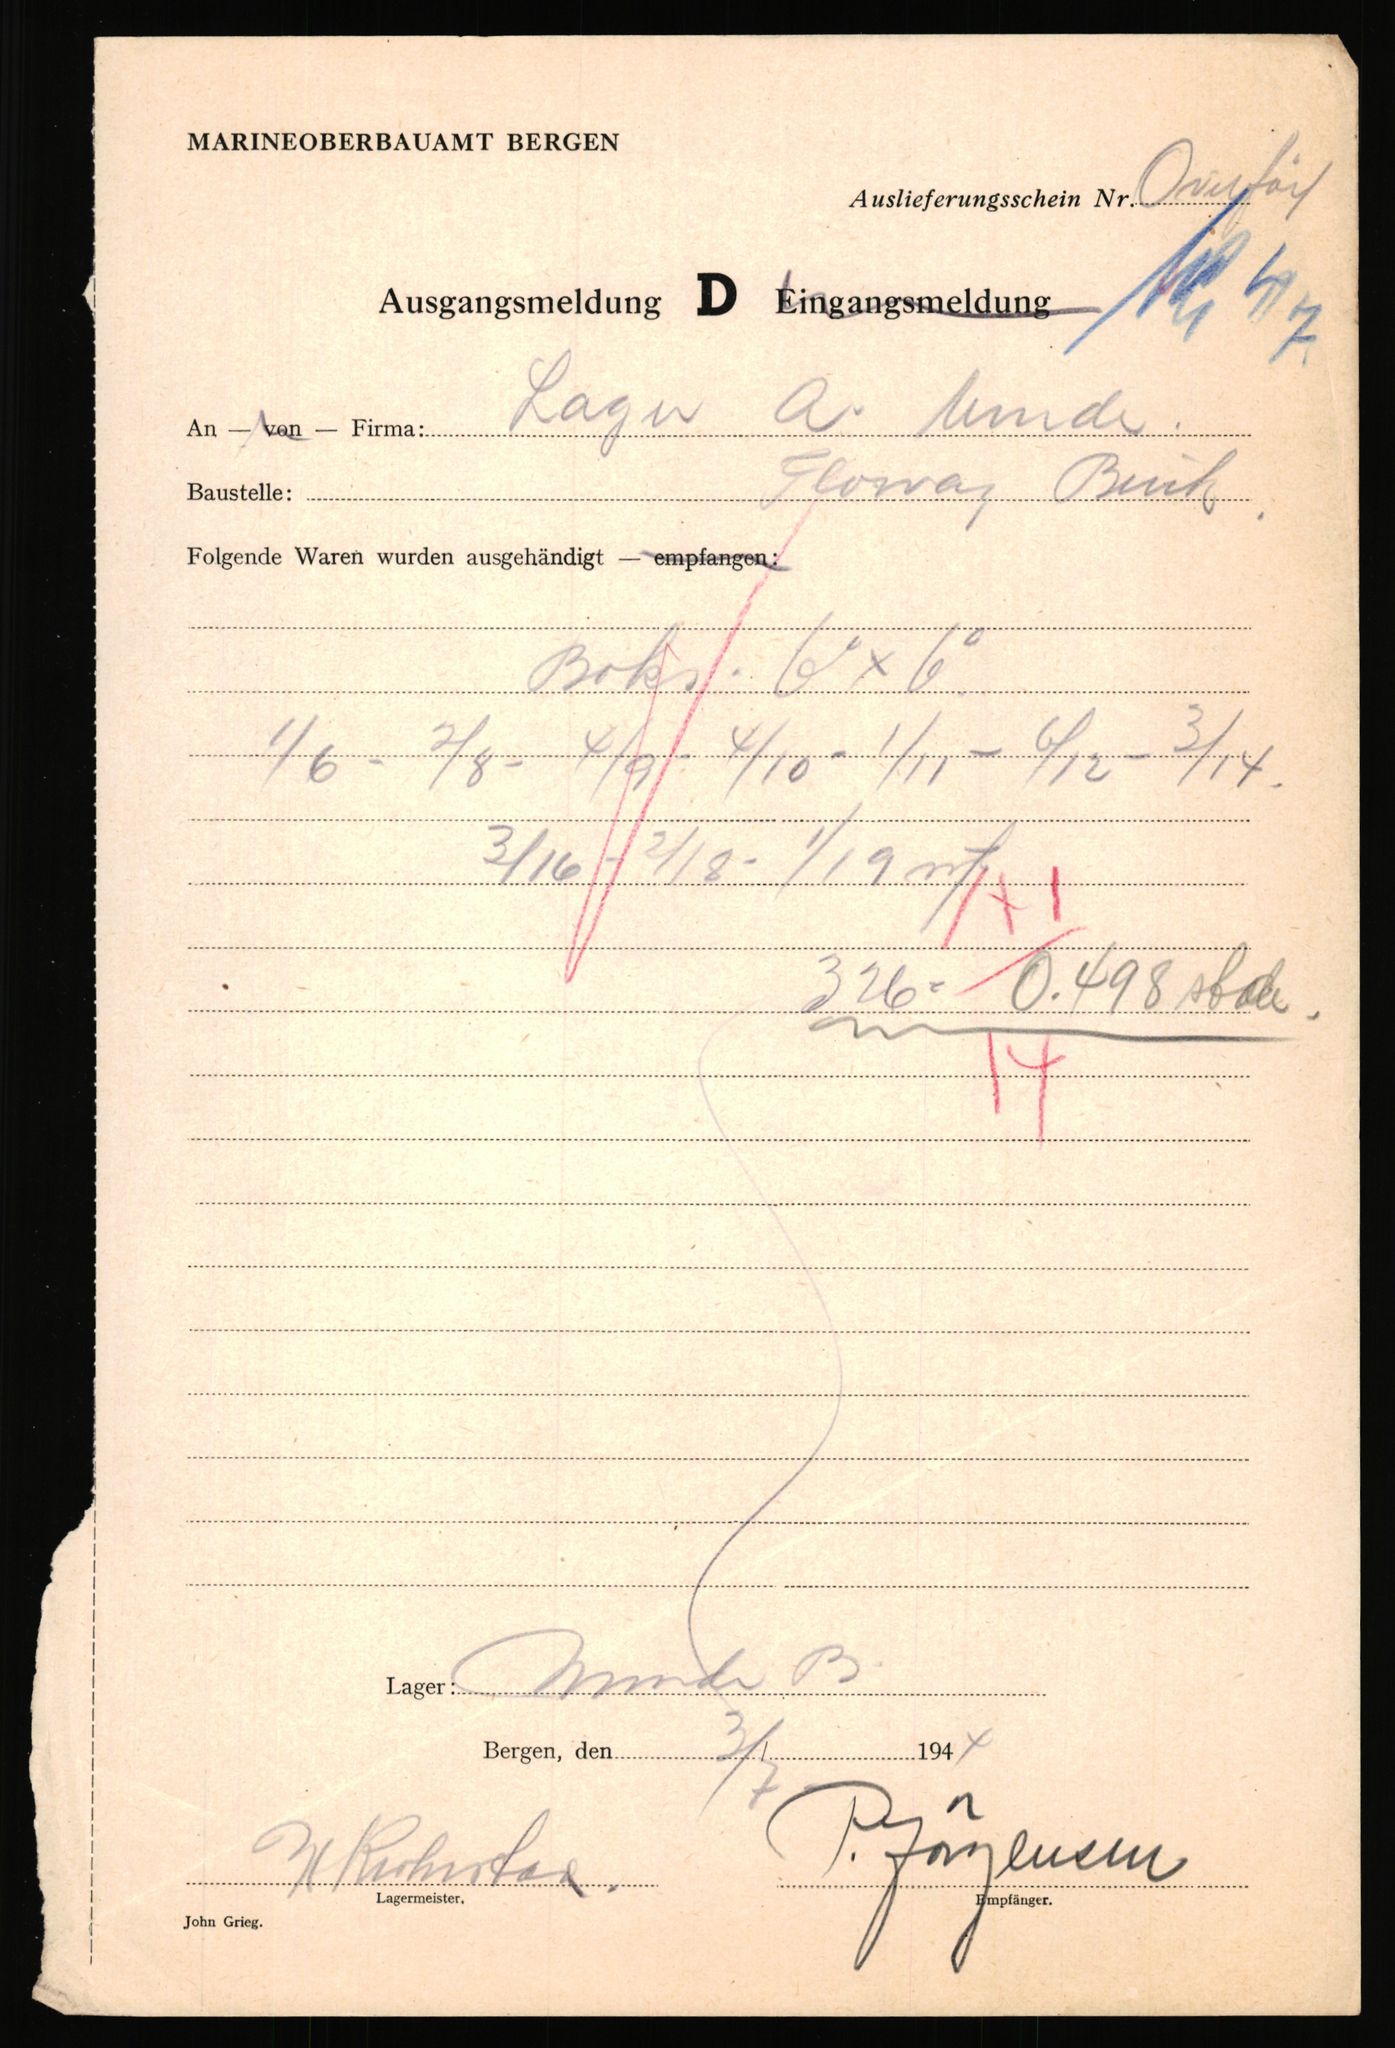 MARINEOBERBAUAMT BERGEN
Auslieferungsschein Nr. Overför
Ausgangsmeldung D Eingangsmeldung
4/7.
An — von — Firma: Lager A. Unnde.
Baustelle: Florvag Bruk.
Folgende Waren wurden ausgehändigt — empfangen:
Boks. 6" x 6"
1/6 - 2/8 - 4/9 - 4/10 - 1/11 - 6/12 - 3/14.
3/16 - 2/18 - 1/19
326 - 0.498
14
Lager: B.
Bergen, den 3/7 1944
P. Jörgensen
Lagermeister. Empfänger.
John Grieg.